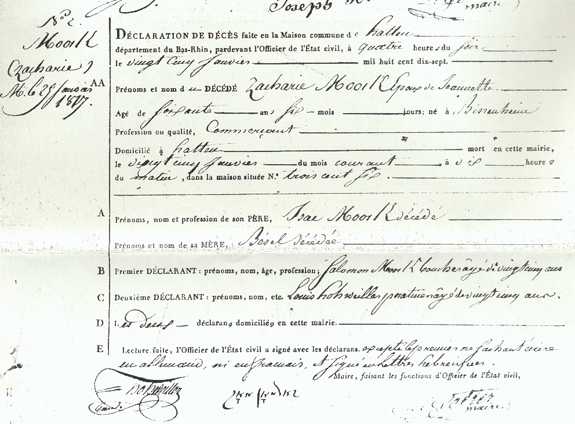 Joseph M
maire
No. 2.
Moock
Zacharie
M. le 25 Janvier
1817.
DÉCLARATION DE DÉCÈS faite en la Maison commune de hatten
département du Bas-Rhin, pardevant l'Officier de l'État civil, à quatre heures du soir
le vingt cinq janvier mil huit cent dix-sept.
AA Prénoms et nom du DÉCÉDÉ Zacharie Moock Epoux de Jeannette
Agé de soixante ans six mois jours; né à
Profession ou qualité, Commerçant
Domicilié à hatten mort en cette mairie,
le vingt cinq janvier du mois courant à dix heures
du matin, dans la maison située N.° trois cent six
A Prénoms, nom et profession de son PÈRE, Isac Moock décédé
Prénoms et nom de sa MÈRE, Bésel décédée
B Premier DÉCLARANT: prénoms, nom, âge, profession; Salomon Moock boucher âgé de vingt cinq ans
C Deuxième DÉCLARANT: prénoms, nom, etc. Louis de vingt cinq ans.
D Les deux déclarans domiciliés en cette mairie.
E Lecture faite, l'Officier de l'État civil a signé avec les déclarans. excepté le premier ne sachant écrire
en allemand, ni en français, et signé en lettres hebraiques.
Maire, faisant les fonctions d'Officier de l'État civil,
maire